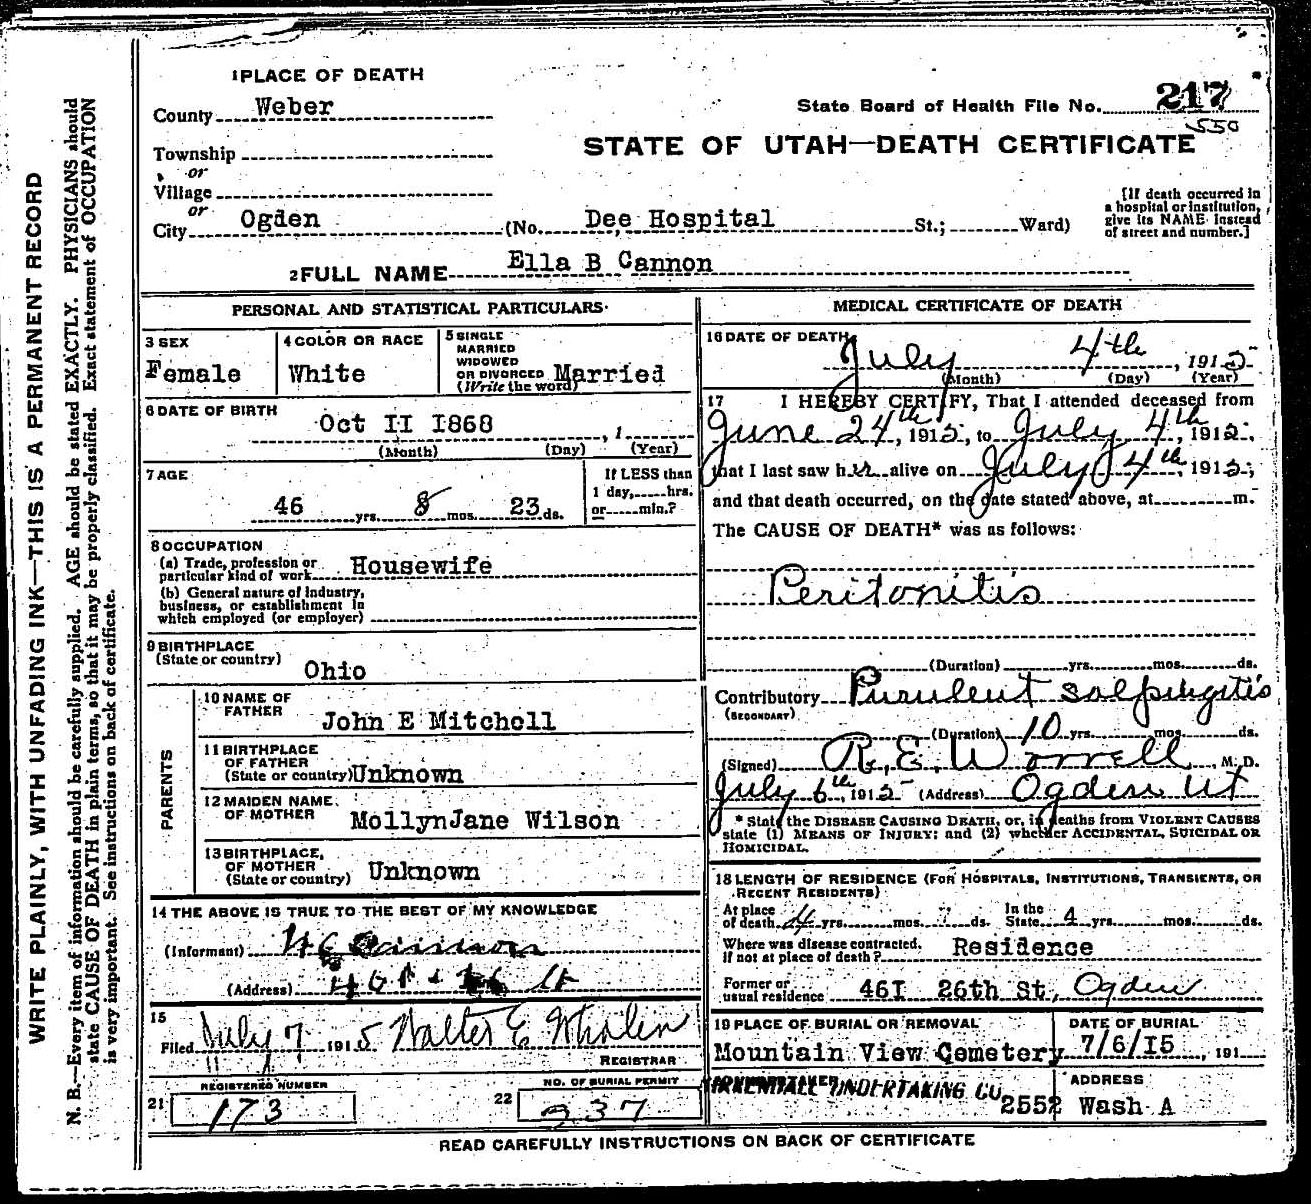 WRITE PLAINLY, WITH UNFADING INK—THIS IS A PERMANENT RECORD
N. B.—Every item of information should be carefully supplied. AGE should be stated EXACTLY. PHYSICIANS should
state CAUSE OF DEATH in plain terms, so that it may be properly classified. Exact statement of OCCUPATION
is very important. See instructions on back of certificate.
1 PLACE OF DEATH
County Weber
State Board of Health File No. 217
550
STATE OF UTAH—DEATH CERTIFICATE
Township
or
Village
or
City Ogden (No. Dee Hospital St.; Ward)
[If death occurred in
a hospital or institution,
give its NAME instead
of street and number.]
2 FULL NAME Ella B Cannon
PERSONAL AND STATISTICAL PARTICULARS
3 SEX
Female
4 COLOR OR RACE
White
5 SINGLE
MARRIED
WIDOWED
OR DIVORCED Married
(Write the word)
6 DATE OF BIRTH
Oct II I868 , 1
(Month) (Day) (Year)
7 AGE
46 yrs. 8 mos. 23 ds.
If LESS than
1 day, hrs.
or min.?
8 OCCUPATION
(a) Trade, profession or
particular kind of work Housewife
(b) General nature of industry,
business, or establishment in
which employed (or employer)
9 BIRTHPLACE
(State or country)
Ohio
PARENTS
10 NAME OF
FATHER
John E Mitchell
11 BIRTHPLACE
OF FATHER
(State or country) Unknown
12 MAIDEN NAME
OF MOTHER
MollynJane Wilson
13 BIRTHPLACE,
OF MOTHER
(State or country) Unknown
14 THE ABOVE IS TRUE TO THE BEST OF MY KNOWLEDGE
(Informant) Cannon
(Address) 461
15
Filed July 7 1915 Walter E Whalen
REGISTRAR
REGISTERED NUMBER
21 173
NO. OF BURIAL PERMIT
22 337
MEDICAL CERTIFICATE OF DEATH
16 DATE OF DEATH
July 4th , 1915
(Month) (Day) (Year)
17 I HEREBY CERTIFY, That I attended deceased from
June 24th, 1915, to July 4th, 1915,
that I last saw her alive on July 4th, 1915,
and that death occurred, on the date stated above, at m.
The CAUSE OF DEATH* was as follows:
Peritonitis
(Duration) yrs. mos. ds.
Contributory Purulent salpingitis
(SECONDARY)
(Duration) 10 yrs. mos. ds.
(Signed) R. E. Worrell, M. D.
July 6th, 1915 (Address) Ogden Ut
* State the DISEASE CAUSING DEATH, or, in deaths from VIOLENT CAUSES
state (1) MEANS OF INJURY; and (2) whether ACCIDENTAL, SUICIDAL OR
HOMICIDAL.
18 LENGTH OF RESIDENCE (FOR HOSPITALS, INSTITUTIONS, TRANSIENTS, OR
RECENT RESIDENTS)
At place
of death yrs. mos. ds.
In the
State 4 yrs. mos. ds.
Where was disease contracted,
if not at place of death? Residence
Former or
usual residence 46I 26th St, Ogden
19 PLACE OF BURIAL OR REMOVAL
Mountain View Cemetery
DATE OF BURIAL
7/6/I5 , 191
KIRKENDALL UNDERTAKING CO
ADDRESS
2552 Wash A
READ CAREFULLY INSTRUCTIONS ON BACK OF CERTIFICATE